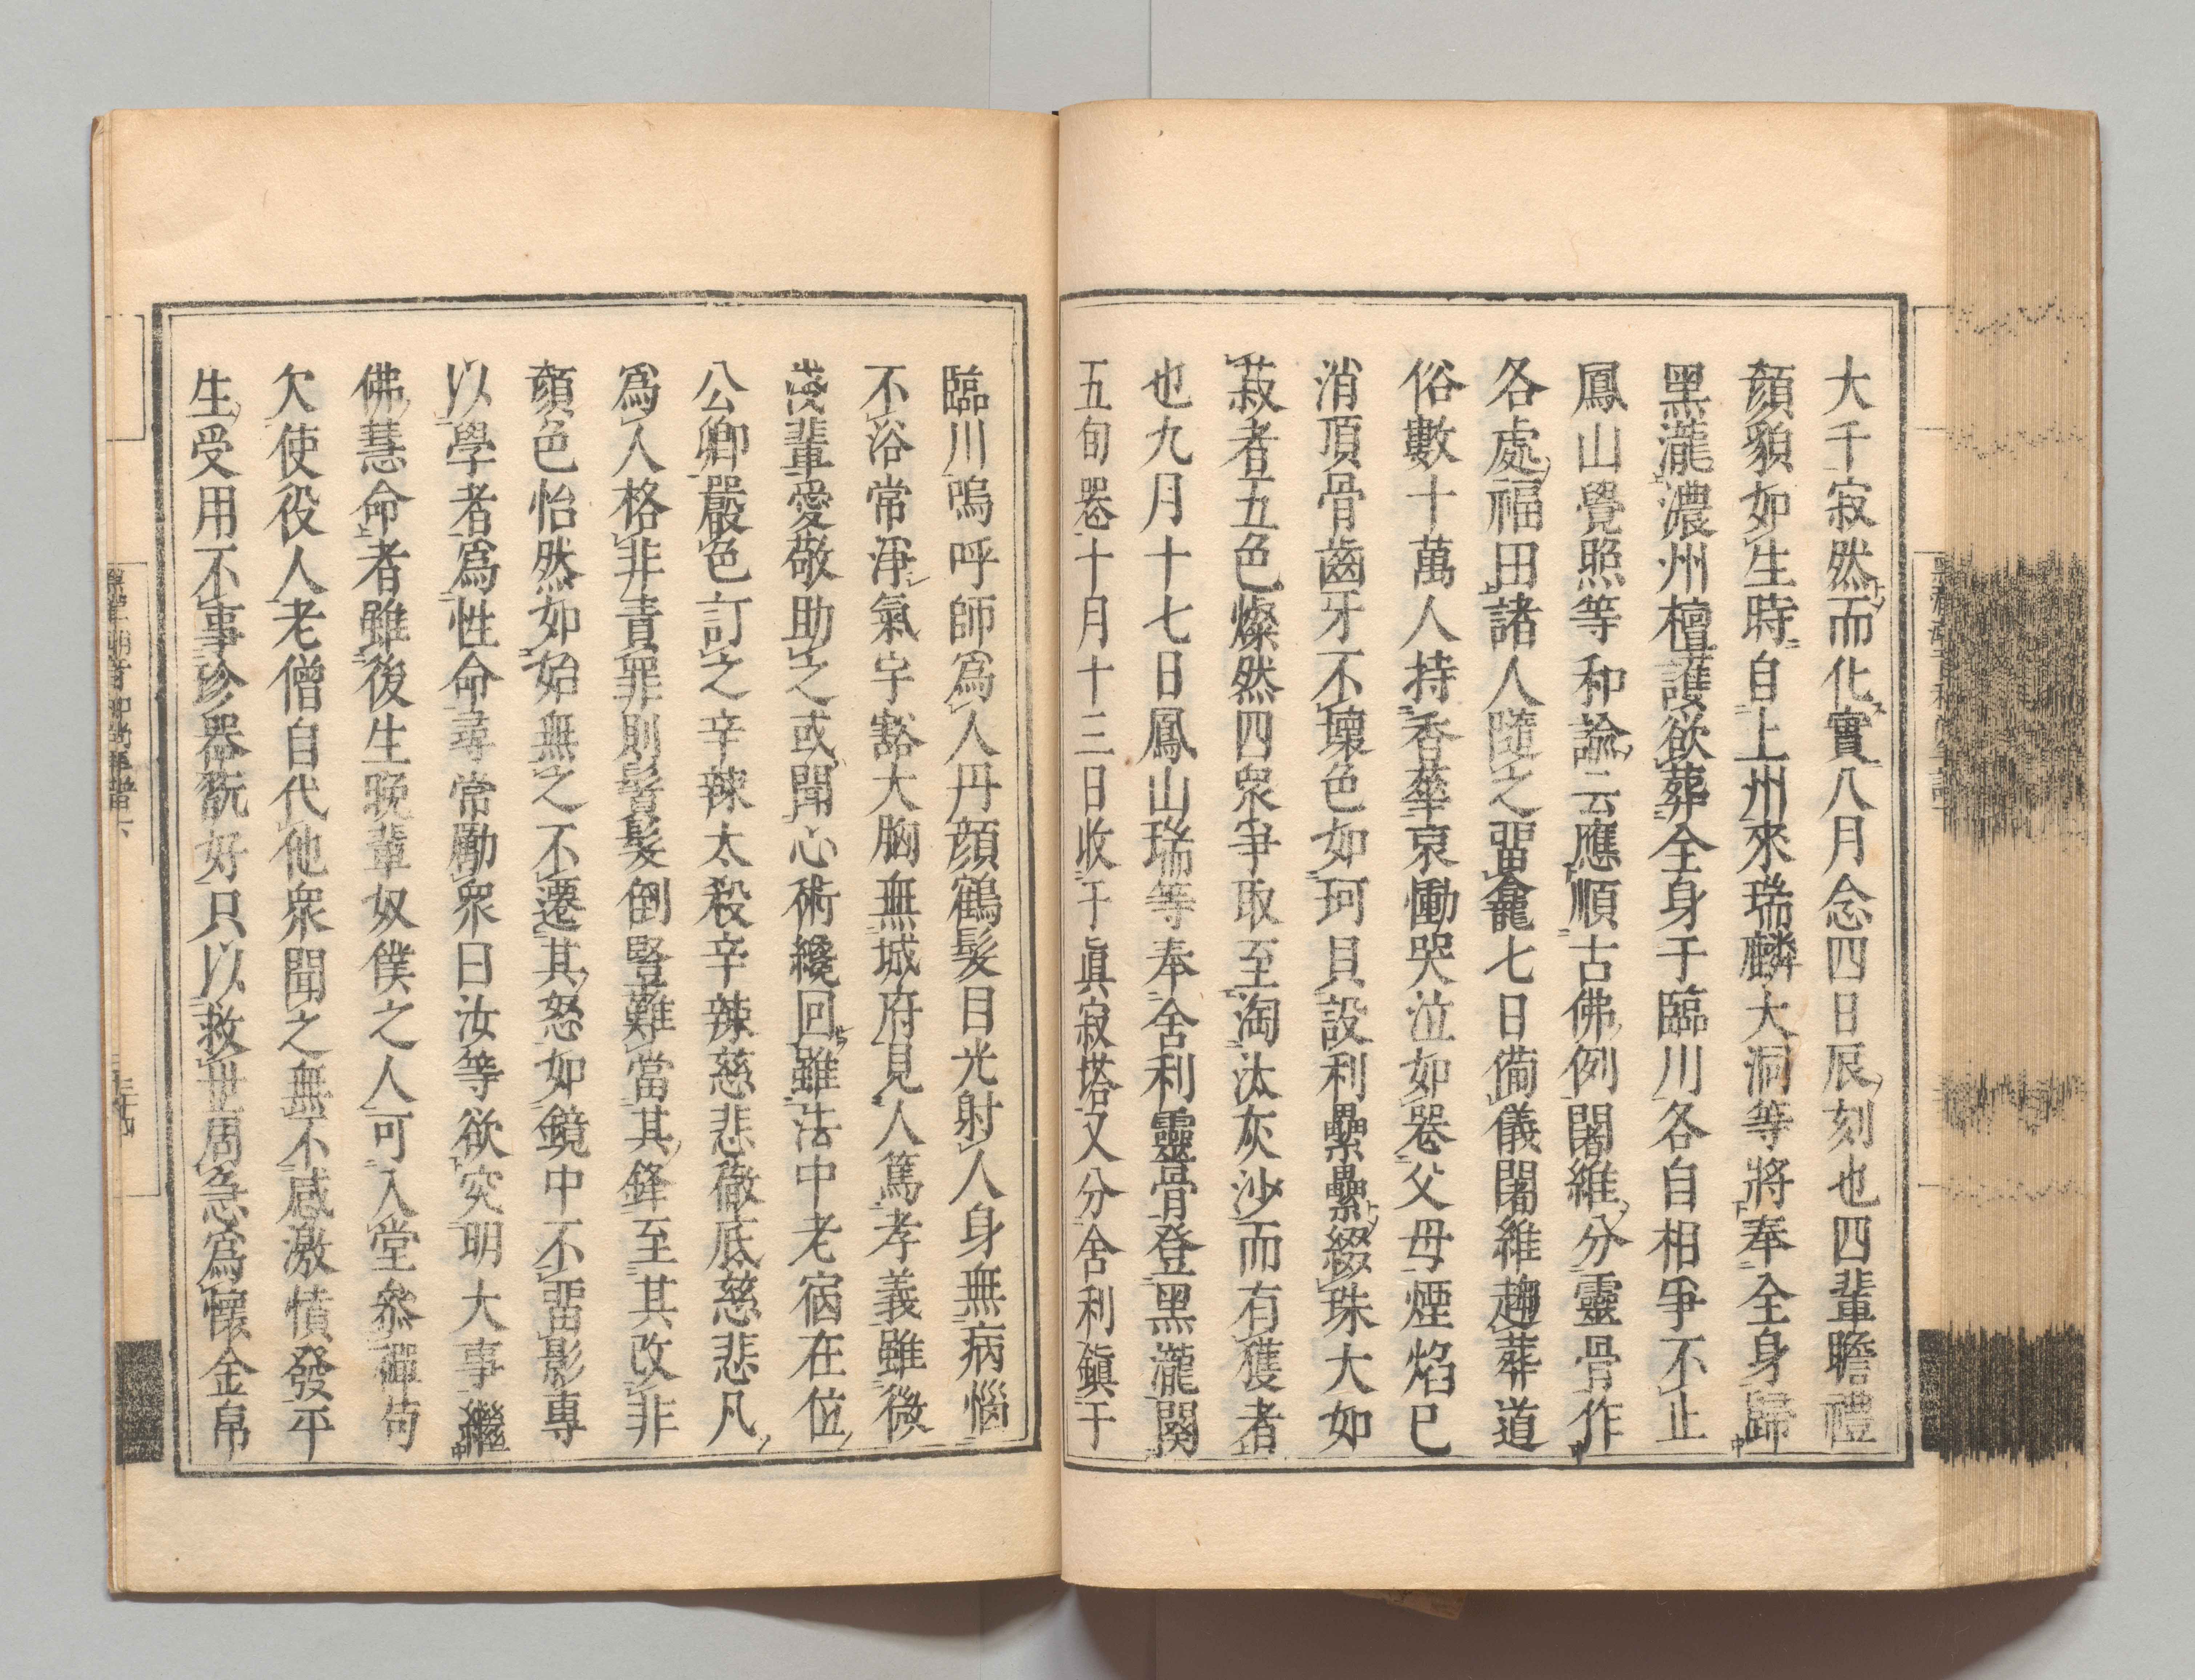 大千寂然而化實八月念四日辰刻也四輩瞻禮
顏貌如生時自上州來瑞麟大洞等將奉全身歸
黑瀧濃州檀護欲葬全身于臨川各自相爭不止
鳳山覺照等和論云應順古佛例闍維分靈骨作
各處福田諸人隨之畱龕七日備儀闍維趨葬道
俗數十萬人持香華哀慟哭泣如喪父母煙焰已
消頂骨齒牙不壞色如珂貝設利纍纍綴珠大如
菽者五色燦然四眾爭取至淘汰灰沙而有獲者
也九月十七日鳳山瑞等奉舍利靈骨登黑瀧闋
五旬喪十月十三日收于眞寂塔又分舍利鎭于
臨川嗚呼師為人丹顏鶴髮目光射人身無病惱
不浴常淨氣宇豁大胸無城府見人篤孝義雖微
淺輩愛敬助之或聞心術纔回雖法中老宿在位
公卿嚴色訂之辛辣太殺辛辣慈悲徹底慈悲凡
為人格非責罪則鬢髮倒豎難當其鋒至其改非
顏色怡然如始無之不遷其怒如鏡中不畱影專
以學者為性命尋常勵眾曰汝等欲究明大事繼
佛慧命者雖後生晚輩奴僕之人可入堂參禪苟
欠使役人老僧自代他眾聞之無不感激憤發平
生受用不事珍器翫好只以救世周急為懷金帛